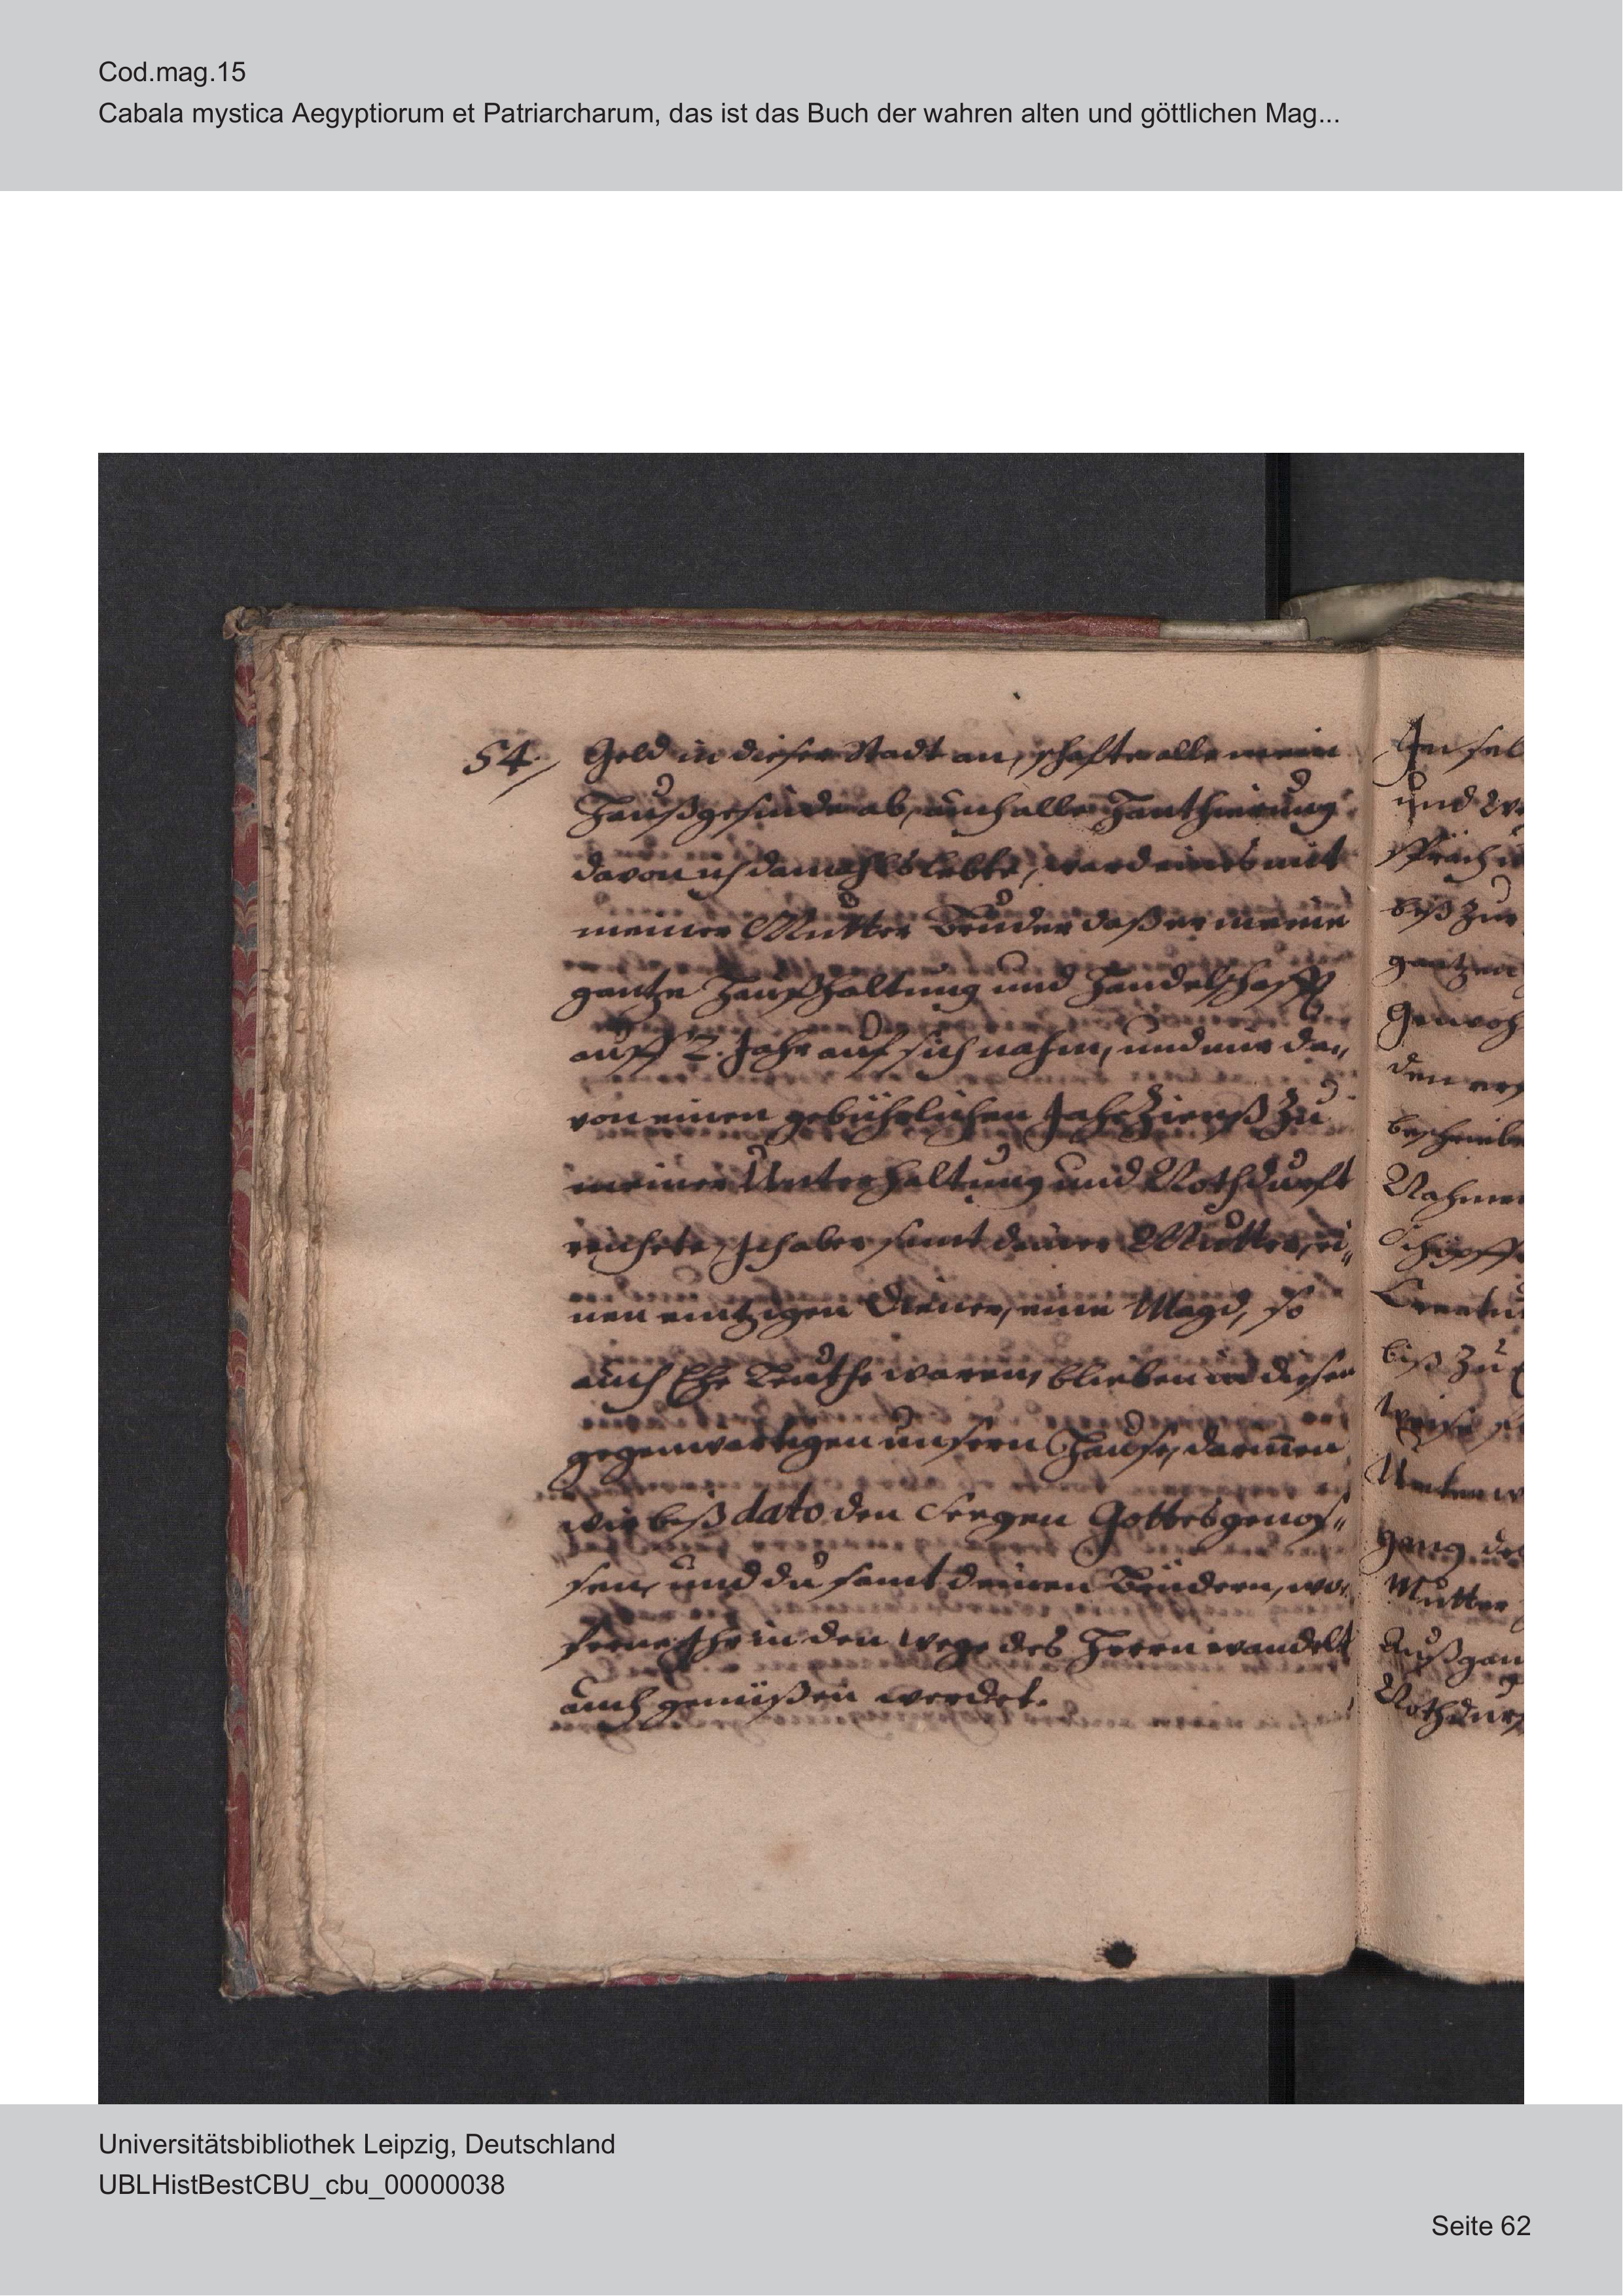 Cod.mag.15
Cabala mystica Aegyptiorum et Patriarcharum, das ist das Buch der wahren alten und göttlichen Mag...
54. Geld in dieser Stadt an, schaffte alle mein
Haußgesinde ab, auch alle Hanthierung
davon ich damahls lebte, ward eines mit
meiner Mutter Bruder daß er meine
gantze Haußhaltung und Handelschafft
auff 2. Jahr auf sich nahm, und mir da„
von einen gebührlichen Jahrzienß zu
meiner Unterhaltung und Nothdurft
reichete, Ich aber samt deiner Mutter, ei„
nen eintzigen Diener, eine Magd, so
auch Ehe Leuthe waren, blieben in dieser
gegenwärtigen unsern Hause, darinnen
wir biß dato den Seegen Gottes genos„
sen, und du samt deinen Brüdern, wo„
ferne Ihr in den Wege des Herrn wandelt
auch genüßen werdet.
und
biß zur
gantzen
den
Nahmen
biß zu
gang
Mutter
Universitätsbibliothek Leipzig, Deutschland
UBLHistBestCBU_cbu_00000038
Seite 62